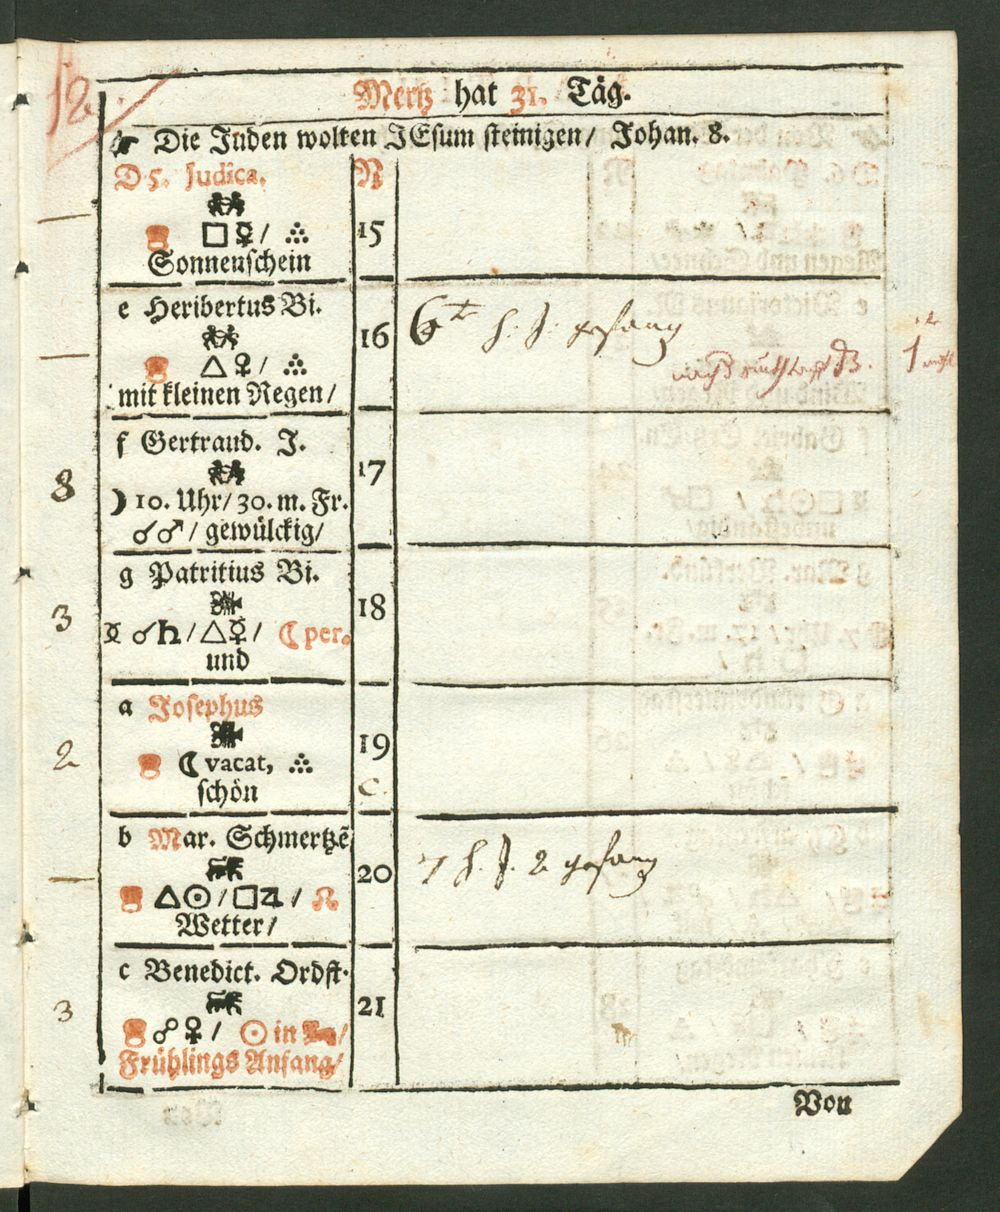 12.
Mertz hat 31. Täg.
☛ Die Juden wolten JEsum steinigen/ Johan. 8.
D 5. Judica. N
□♀/ ∴ 15
Sonnenschein
e Heribertus Bi.
16 6te h: J: gesang
△♀/ ∴
mit kleinen Regen/
f Gertraud. J.
8 17
☽ 10. Uhr/ 30. m. Fr.
☌♂/ gewülckig/
g Patritius Bi.
3 18
☿ ☌♄/△☿/ ☾per.
und
a Josephus
2 19
☾vacat, ∴
schön C.
b Mar. Schmertzē
20 7 h. J. 2 gesang
△☉/□♃/ ☊
Wetter/
c Benedict. Ordst.
3 21
☍♀/ ☉ in ♈/
Frühlings Anfang/
Von